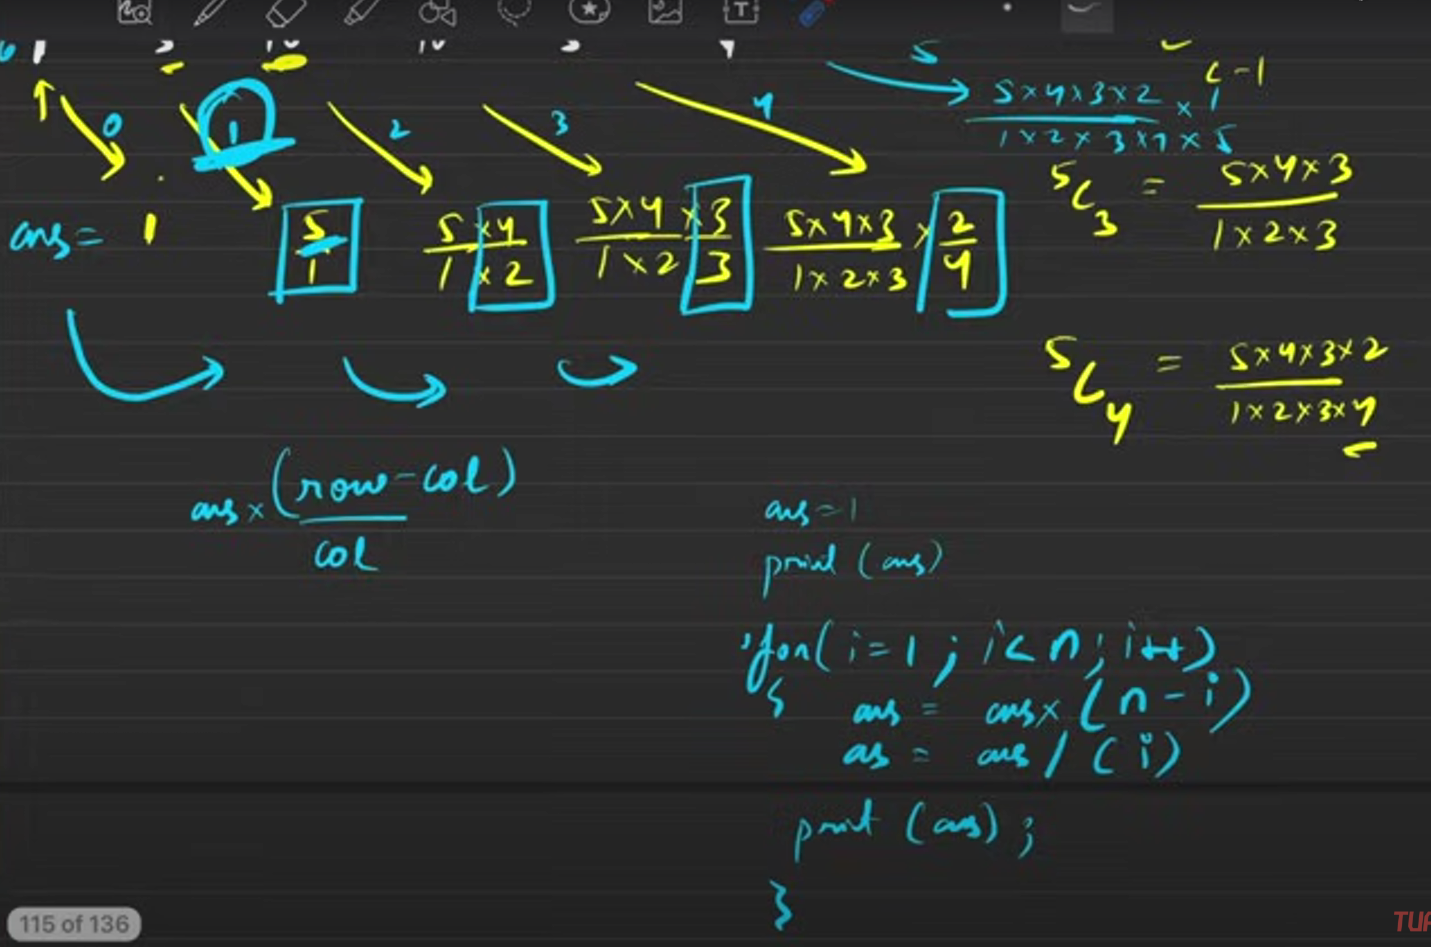 5
c-1
0 1 2 3 4
5×4×3×2 × 1
1×2×3×4×5
ans = 1
5/1
5×4
1×2
5×4×3
1×2×3
5×4×3 × 2
1×2×3 4
5C3 = 5×4×3
1×2×3
5C4 = 5×4×3×2
1×2×3×4
ans × (row-col)
col
ans = 1
print (ans)
for(i=1; i<n; i++)
{ ans = ans× (n-i)
as = ans / (i)
print (ans);
}
115 of 136